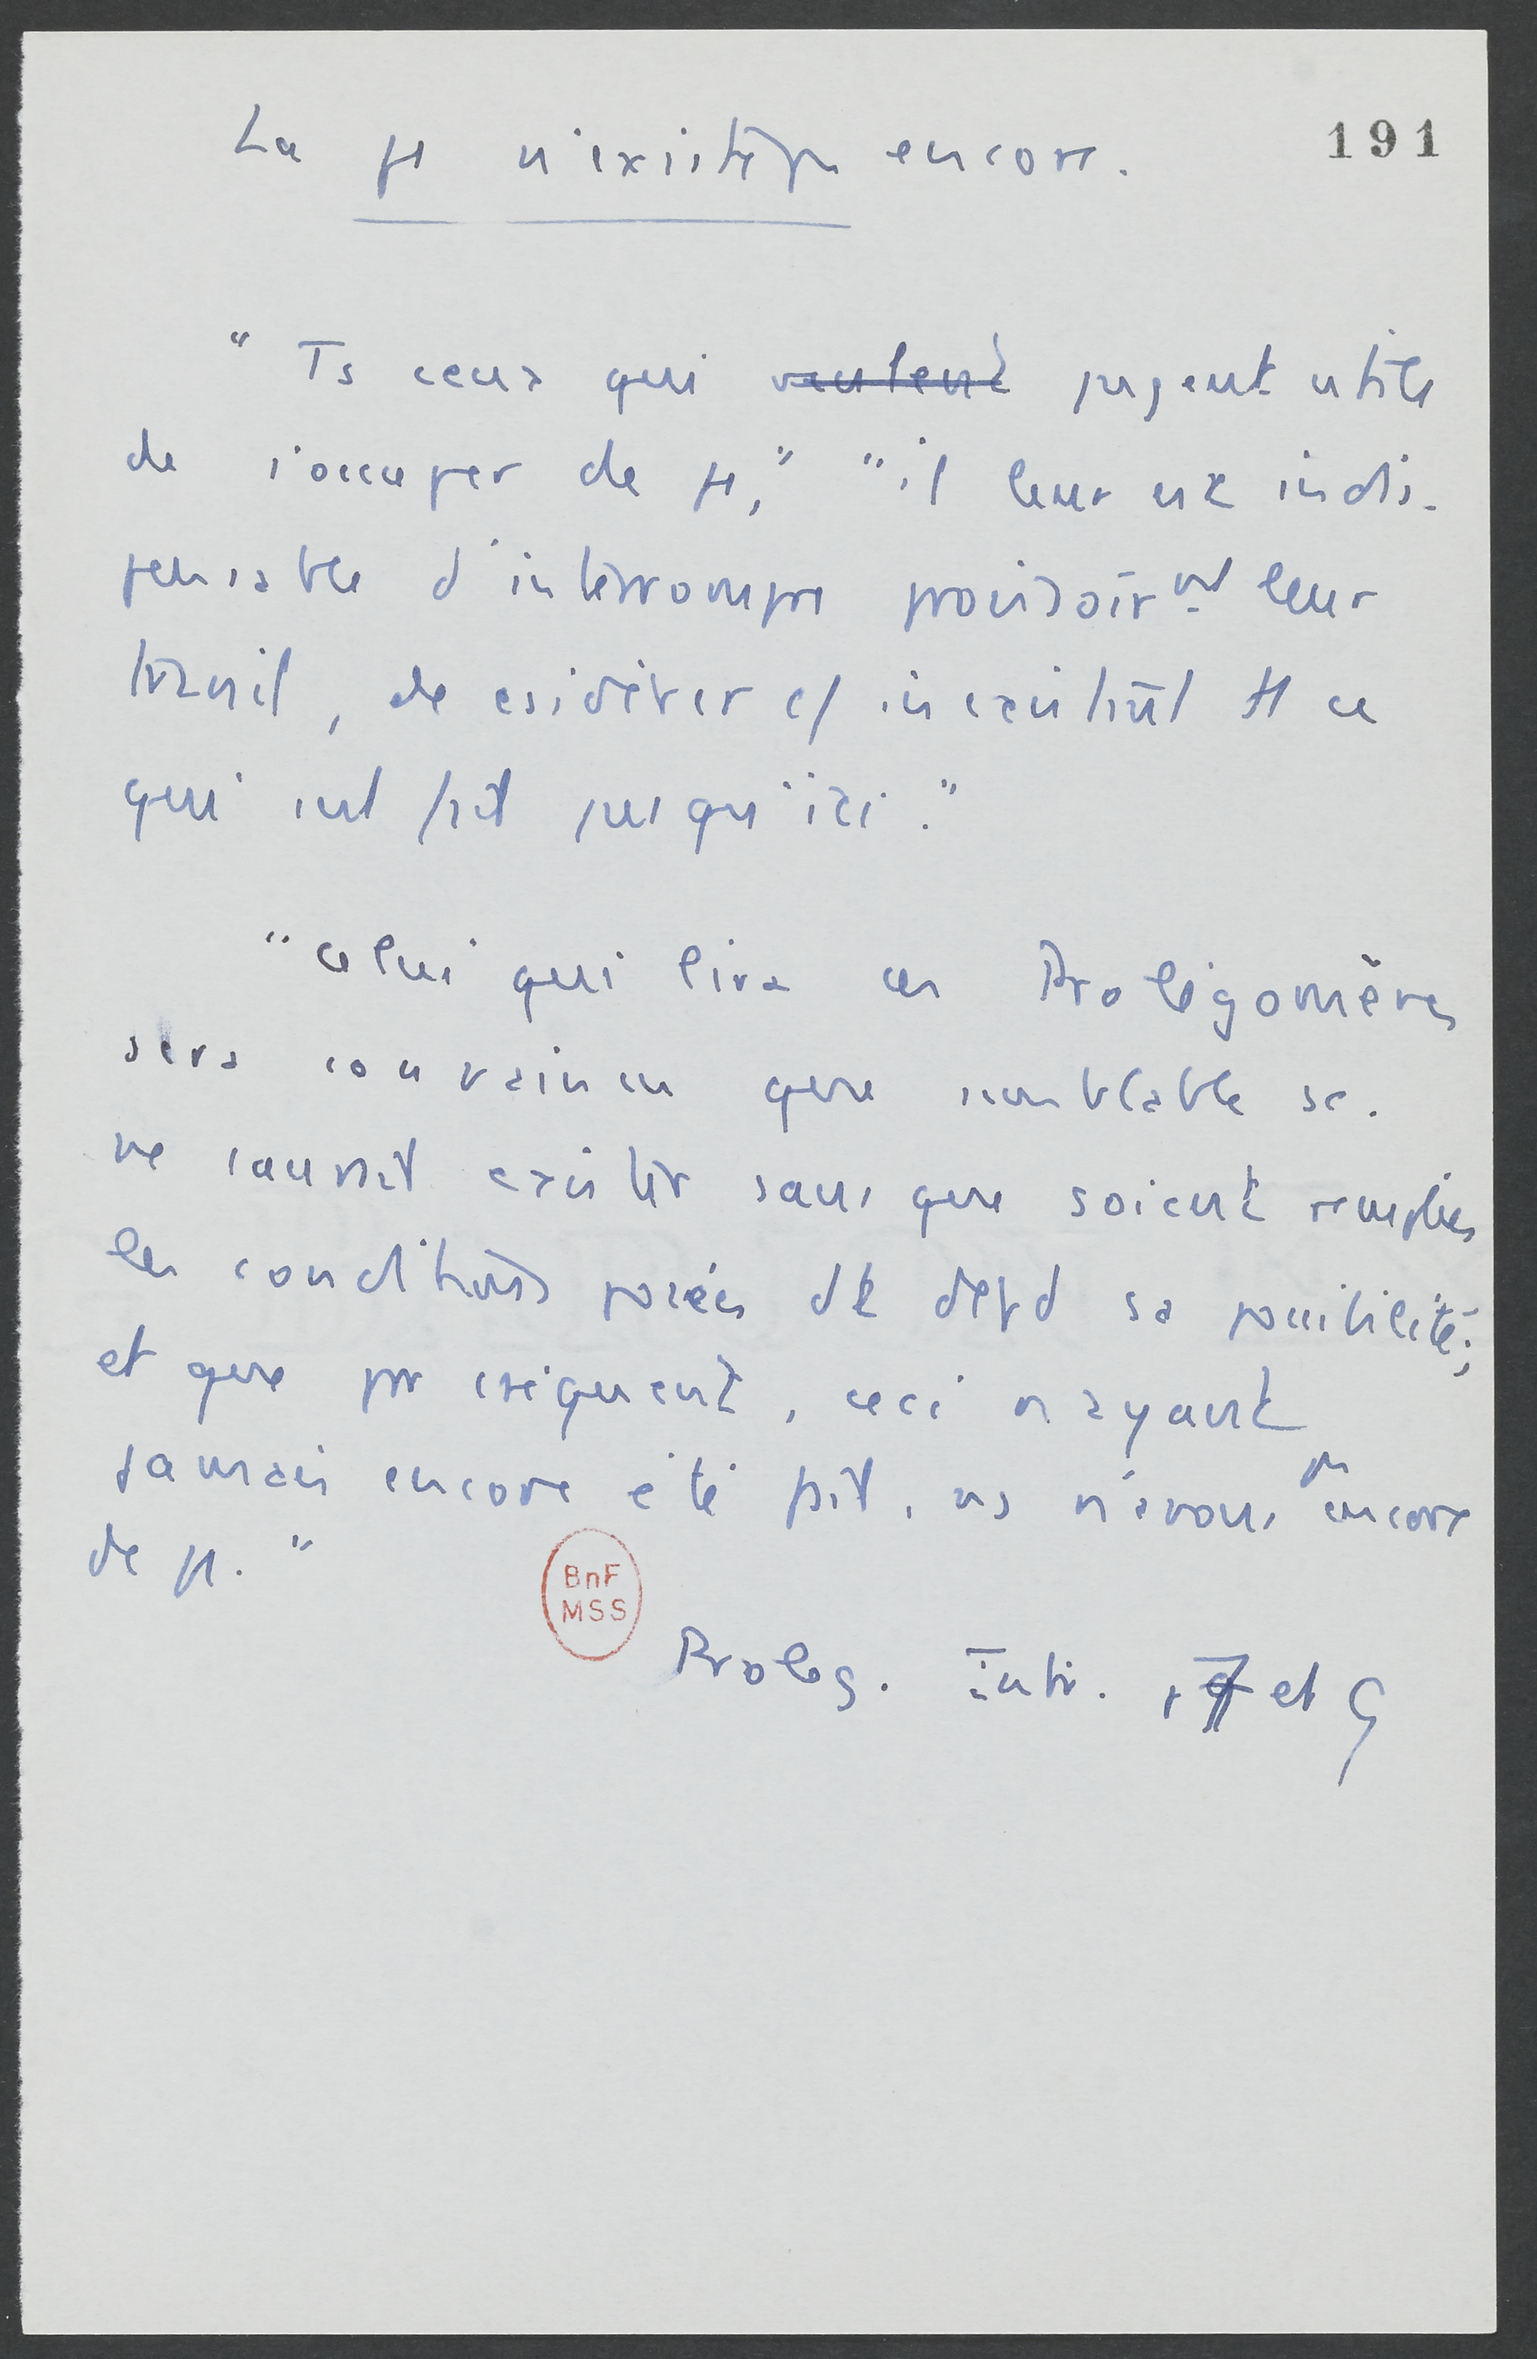 La μ n'existe pas encore.
191
" Ts ceux qui veulent jugent utile
de s'occuper de μ, " " il leur est indis-
pensable d'interrompre provisoirmt leur
travail, de csidérer c/ inexistant tt ce
qui s'est fait jusqu'ici."
" Celui qui lira ces Prolégomènes
sera convaincu que semblable sc.
ne saurait exister sans que soient remplies
les conditions posées dt depd sa possibilité;
et que pr cséquent, ceci n'ayant
jamais encore été fait, ns n'avons pas encore
de μ. "
BnF
MSS
Proleg. Intr. , 7 et 9